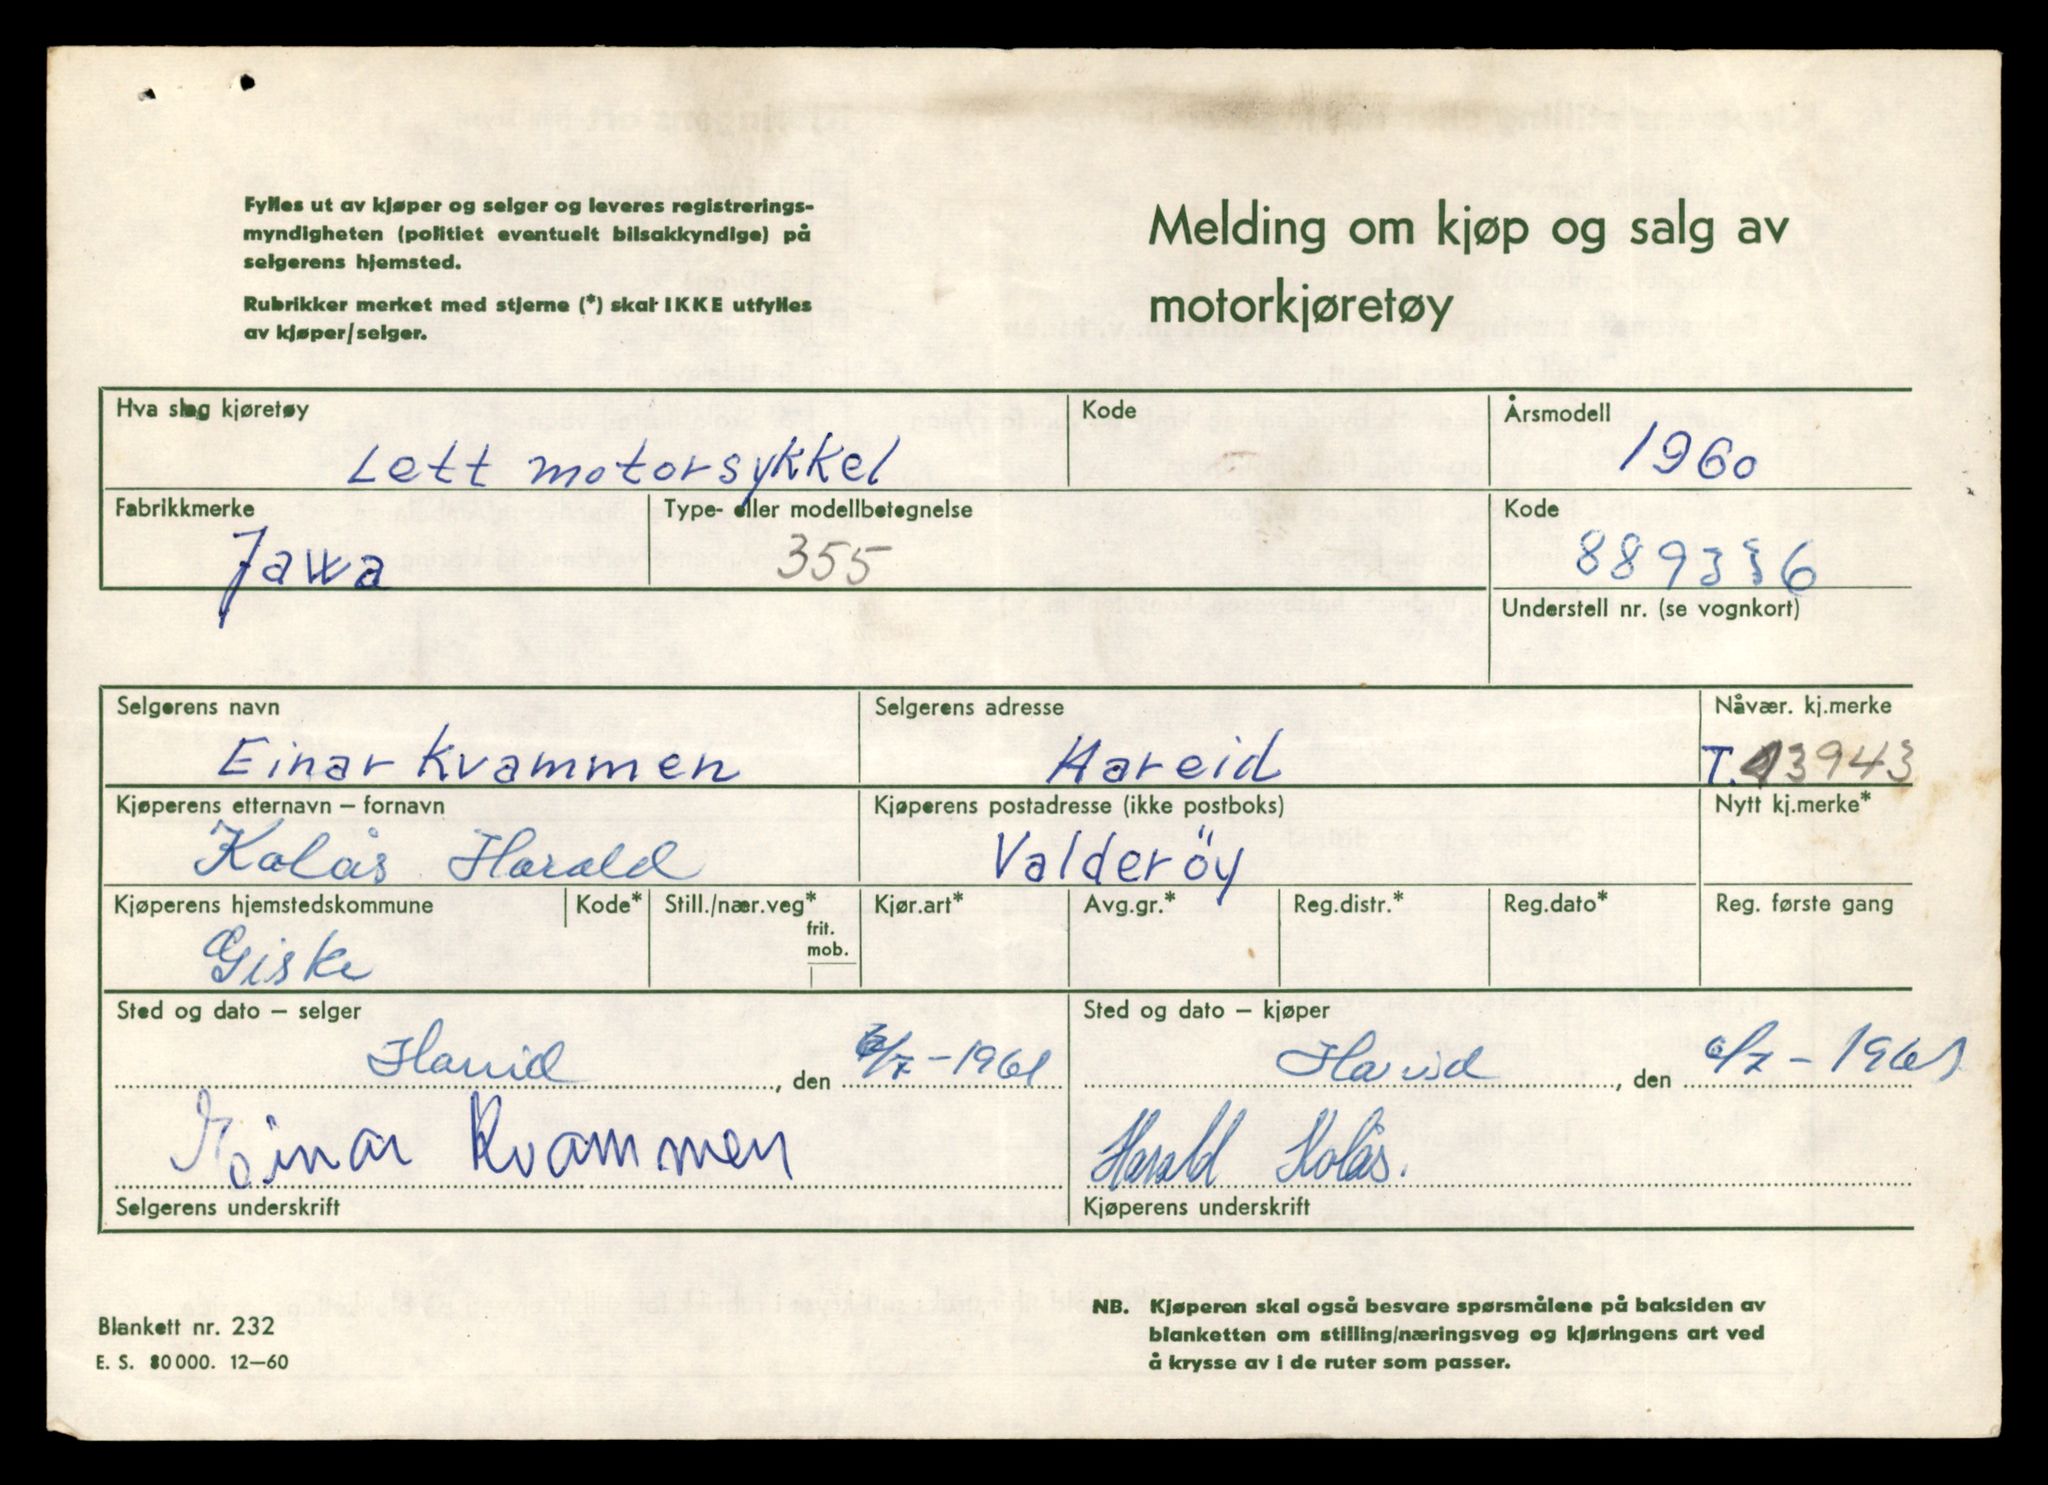 Fylles ut av kjøper og selger og leveres registrerings-
myndigheten (politiet eventuelt bilsakkyndige) på
selgerens hjemsted.
Rubrikker merket med stjerne (*) skal IKKE utfylles
av kjøper/selger.
Melding om kjøp og salg av
motorkjøretøy
Hva slag kjøretøy
Lett motorsykkel
Kode
Årsmodell
1960
Fabrikkmerke
Jawa
Type- eller modellbetegnelse
355
Kode
889336
Understell nr. (se vognkort)
Selgerens navn
Einar Kvammen
Selgerens adresse
Hareid
Nåvær. kj.merke
T.13943
Kjøperens etternavn – fornavn
Kolås Harald
Kjøperens postadresse (ikke postboks)
Valderöy
Nytt kj.merke*
Kjøperens hjemstedskommune
Giske
Kode*
Still./nær.veg*
frit.
mob.
Kjør.art*
Avg.gr.*
Reg.distr.*
Reg.dato*
Reg. første gang
Sted og dato – selger
Hareid, den 6/7-1961
Einar Kvammen
Selgerens underskrift
Sted og dato – kjøper
Hareid, den 6/7-1961
Harald Kolås.
Kjøperens underskrift
Blankett nr. 232
E. S. 80000. 12–60
NB. Kjøperen skal også besvare spørsmålene på baksiden av
blanketten om stilling/næringsveg og kjøringens art ved
å krysse av i de ruter som passer.